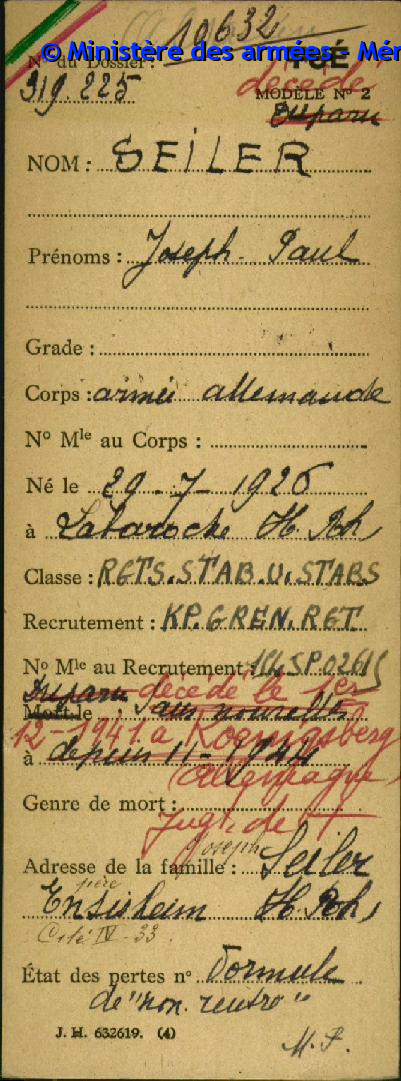 10632
© Ministère des armées - Mém
N° du Dossier : TUÉ
319.225 décédé
MODÈLE N° 2
Disparu
NOM : SEILER
Prénoms : Joseph Paul
Grade :
Corps : armée allemande
N° Mle au Corps :
Né le 29-7-1926
à Labaroche H. Rh,
Classe : RGTS.STAB.U.STABS
Recrutement : KP.GREN.RGT
N° Mle au Recrutement
Disparu décédé le 1er
Mort le sans nouvelles
12-1941 à Koenigsberg
à depuis 11-1944
(Allemagne)
Genre de mort :
Jugt. de
Joseph
Adresse de la famille : Seiler
père
Ensisheim H. Rh,
Cité IV-33.
État des pertes n° Formule
de "non rentré"
J. H. 632619. (4)
M.F.